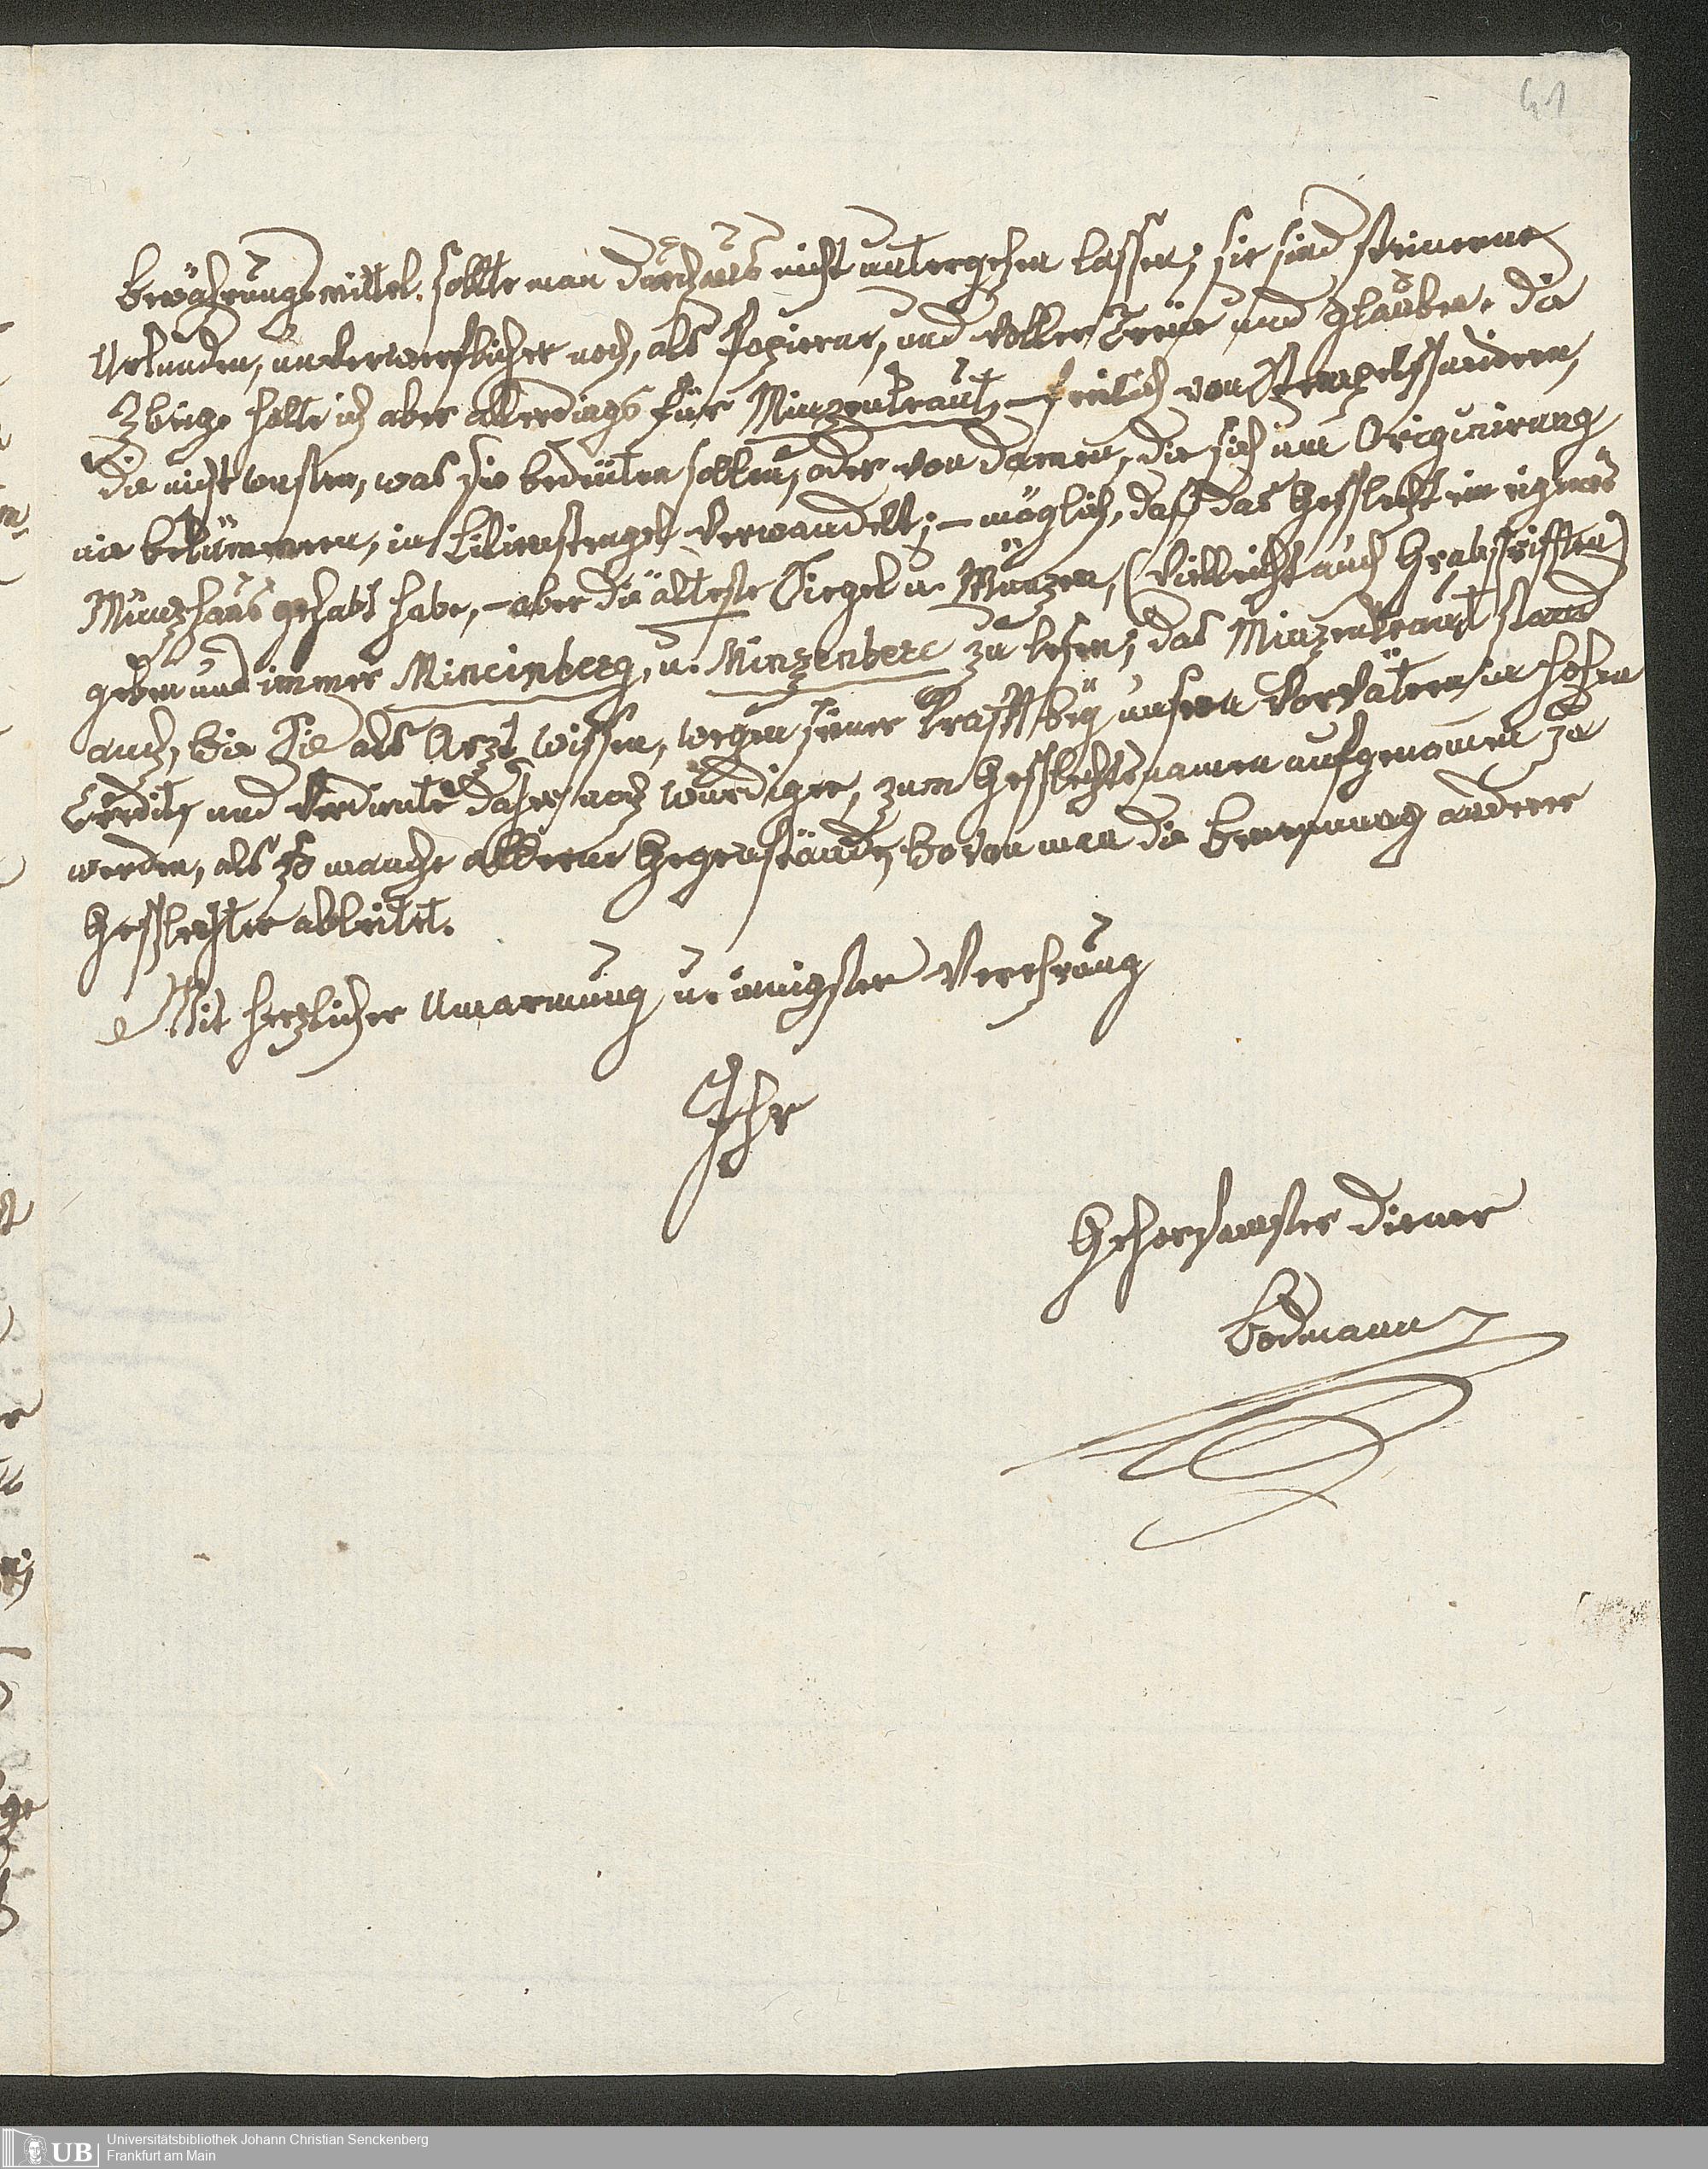 41
bewährungsmittel. sollte man durchaus nicht untergehen lassen; sie sind steinerne
Urkunden, unverwerflicher noch, als papierne, und voller Treüe und Glauben. Die
Zweige halte ich aber allerdings für Minzenkraut, – freilich von Stempelschneidern,
die nicht wusten, was sie bedeüten sollen, oder von damen, die sich um Originirung
nie bekümmern, in Lilienstengel verwandelt; – möglich, daß das Geschlecht ein eignes
Münzhaus gehabt habe, – aber die älteste Siegel u. Münzen, (vielleicht auch Grabschrifften)
geben uns immer Mincinberg, u. Minzenberc zu lesen; das Minzenkraut stand
auch, wie Sie als Arzt wissen, wegen seiner Krafft bey unsren Vorvätern in hohem
Credit, und verdiente daher noch würdiger, zum Geschlechtsnamen aufgenomen zu
werden, als so manche alberne Gegenstände, wovon man die Benennung anderer
Geschlechter ableitet.
Mit herzlicher Umarmung u. innigster Verehrung
Ihr
Gehorsamster Diener
Bodmann
UB
Universitätsbibliothek Johann Christian Senckenberg
Frankfurt am Main